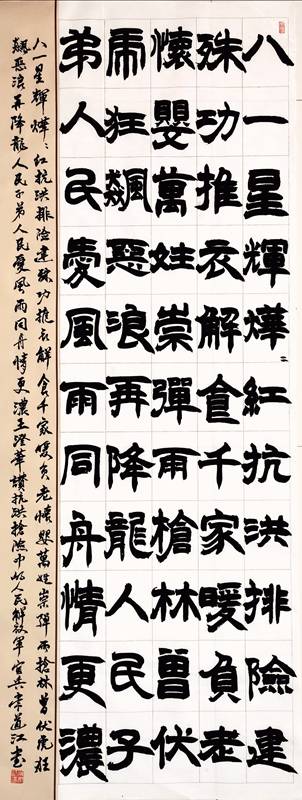 八一星輝燁〻紅抗洪排險建
殊功推衣解食千家暖負老
懷嬰萬姓崇彈雨槍林曾伏
虎狂飆惡浪再降龍人民子
弟人民愛風雨同舟情更濃
八一星輝燁〻紅抗洪排險建殊功推衣解食千家暖負老懷嬰萬姓崇彈雨槍林曾伏虎狂
飆惡浪再降龍人民子弟人民愛風雨同舟情更濃王澄華讚抗洪搶險中的人民解放軍官兵 道江書